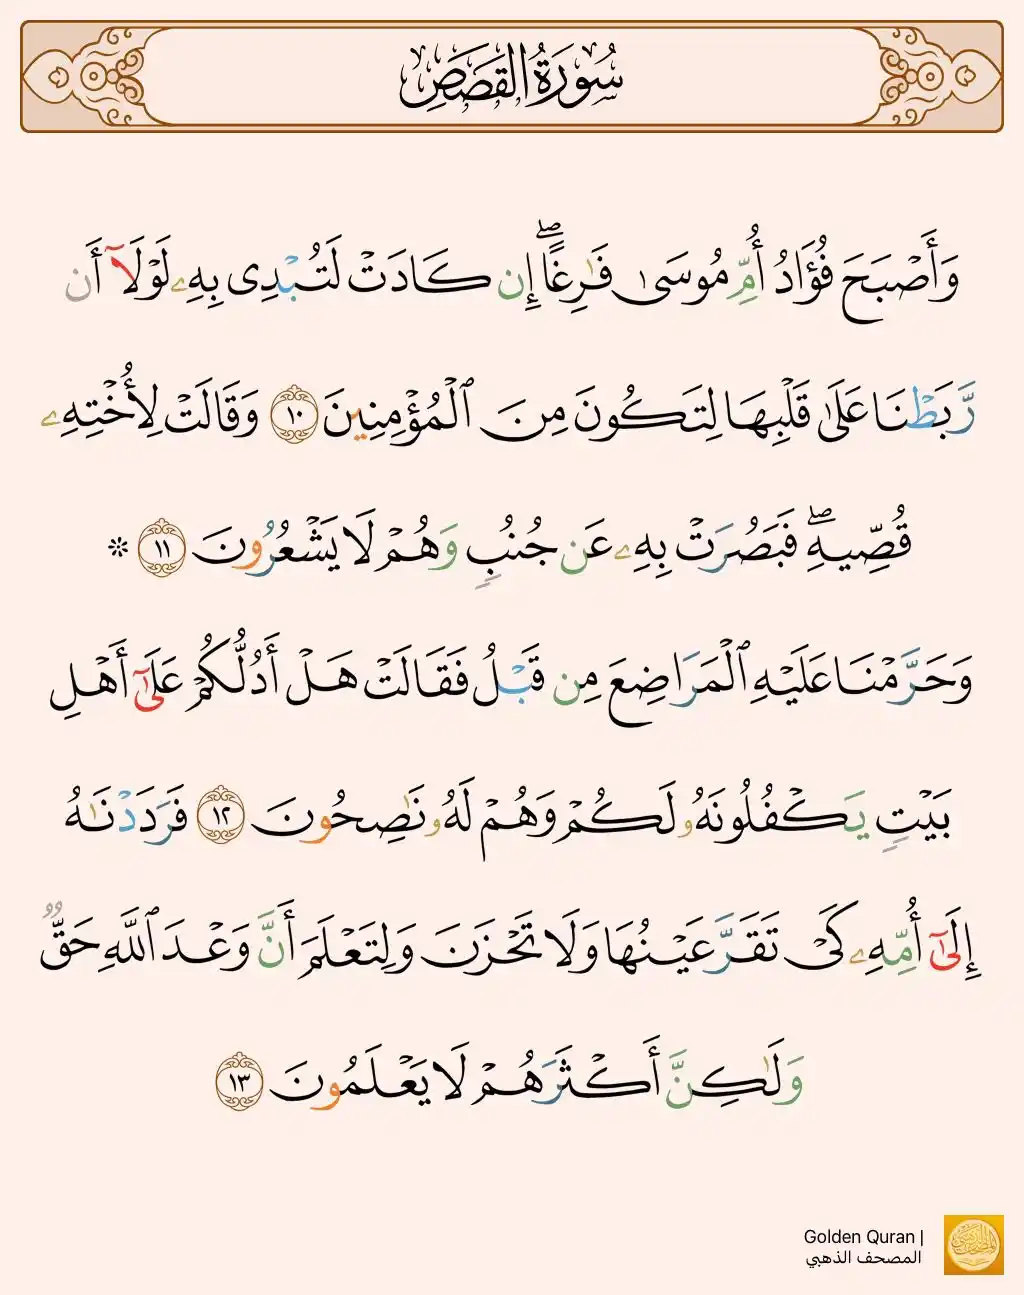 سُورَةُ القَصَصِ
وَأَصۡبَحَ فُؤَادُ أُمِّ مُوسَىٰ فَٰرِغًاۖ إِن كَادَتۡ لَتُبۡدِي بِهِۦ لَوۡلَآ أَن
رَّبَطۡنَا عَلَىٰ قَلۡبِهَا لِتَكُونَ مِنَ ٱلۡمُؤۡمِنِينَ ١٠ وَقَالَتۡ لِأُخۡتِهِۦ
قُصِّيهِۖ فَبَصُرَتۡ بِهِۦ عَن جُنُبٖ وَهُمۡ لَا يَشۡعُرُونَ ١١ *
وَحَرَّمۡنَا عَلَيۡهِ ٱلۡمَرَاضِعَ مِن قَبۡلُ فَقَالَتۡ هَلۡ أَدُلُّكُمۡ عَلَىٰٓ أَهۡلِ
بَيۡتٖ يَكۡفُلُونَهُۥ لَكُمۡ وَهُمۡ لَهُۥ نَٰصِحُونَ ١٢ فَرَدَدۡنَٰهُ
إِلَىٰٓ أُمِّهِۦ كَيۡ تَقَرَّ عَيۡنُهَا وَلَا تَحۡزَنَ وَلِتَعۡلَمَ أَنَّ وَعۡدَ ٱللَّهِ حَقّٞ
وَلَٰكِنَّ أَكۡثَرَهُمۡ لَا يَعۡلَمُونَ ١٣
Golden Quran |
المصحف الذهبي